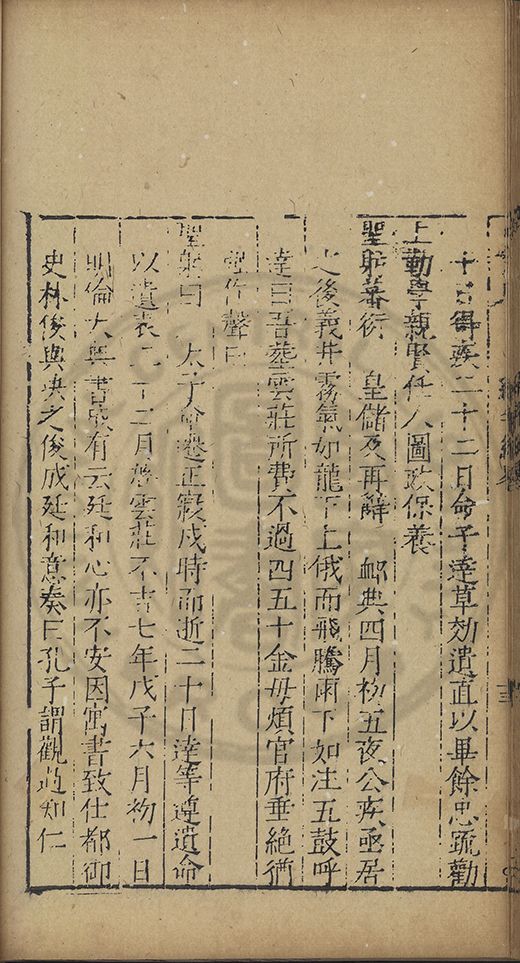 十日得疾二十二日命子達草効遺直以畢餘忠疏勸
上勤學親賢任人圖政保養
聖躬蕃衍 皇儲及再辭 䘏典四月初五夜公疾亟居
之後義井霧氣如龍下上俄而飛騰雨下如注五鼓呼
達曰吾塟雲莊所費不過四五十金毋煩官府垂絶猶
作聲曰
聖 曰 太子 正寢戌時而逝二十日達等遵遺命
以遺表 十二月塟雲莊不吉七年戊子六月初一日
明倫大典書成有云廷和心亦不安因寓書致仕都御
史林俊與決之俊成廷和意奏曰孔子謂觀過知仁